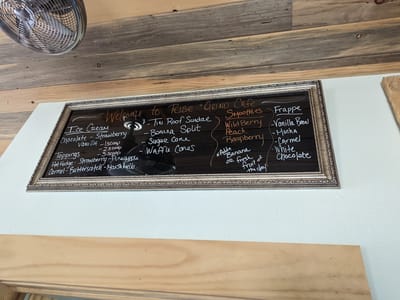 Welcome to Grind Cafe
Ice Cream
Chocolate - Strawberry
Vanilla - 1scoop
2scoop
3scoop
Toppings
Hot Fudge - Strawberry - Pineapple
Carmel - Butterscotch - Marshmello
- Tin Roof Sundae
- Banana Split
- Sugar Cone
- Waffle Cones
Smoothies
Wild Berry
Peach
Raspberry
Add
Banana
or fresh
fruit of
the day
- Frappe
- Vanilla Bean
- Mocha
- Carmel
- White
Chocolate